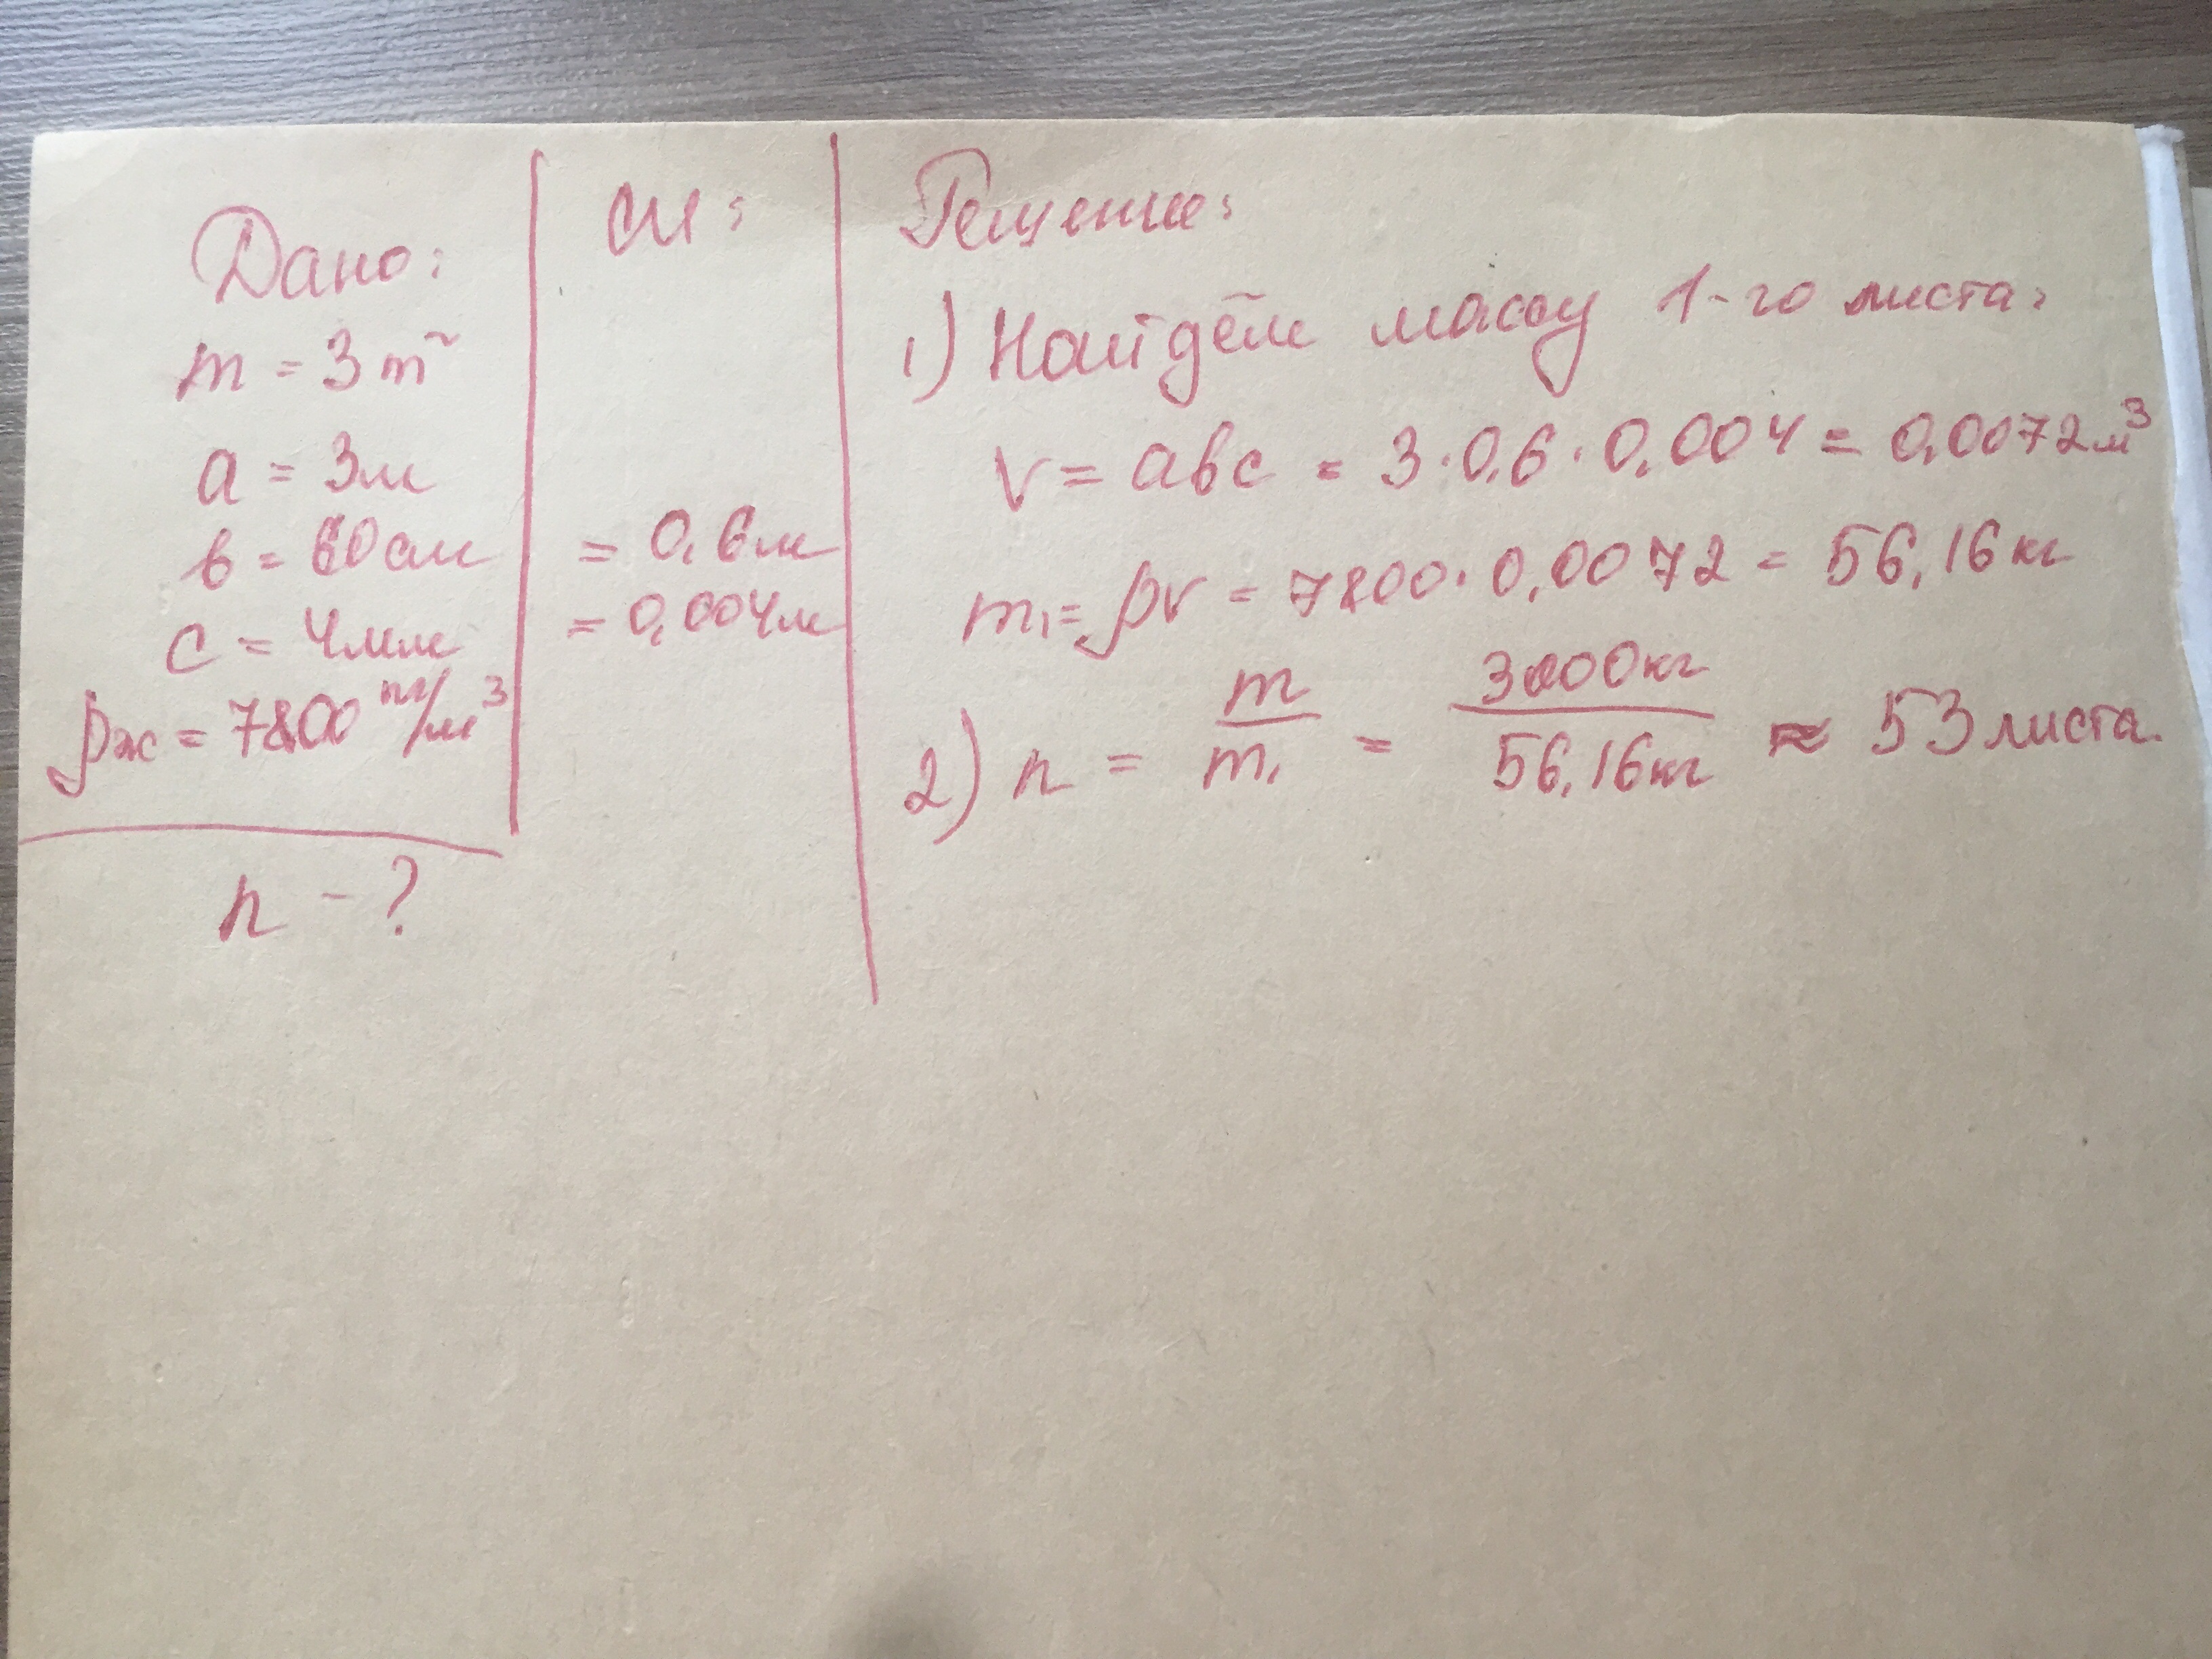 Дано:
m = 3т
a = 3м
в = 60см
c = 4мм
ρж = 7800 кг/м³
n - ?
СИ:
= 0,6м
= 0,004м
Решение:
1) Найдём массу 1-го листа:
V = авс = 3·0,6·0,004 = 0,0072м³
m₁ = ρV = 7800·0,0072 = 56,16кг
2) n = m/m₁ = 3000кг/56,16кг ≈ 53 листа.